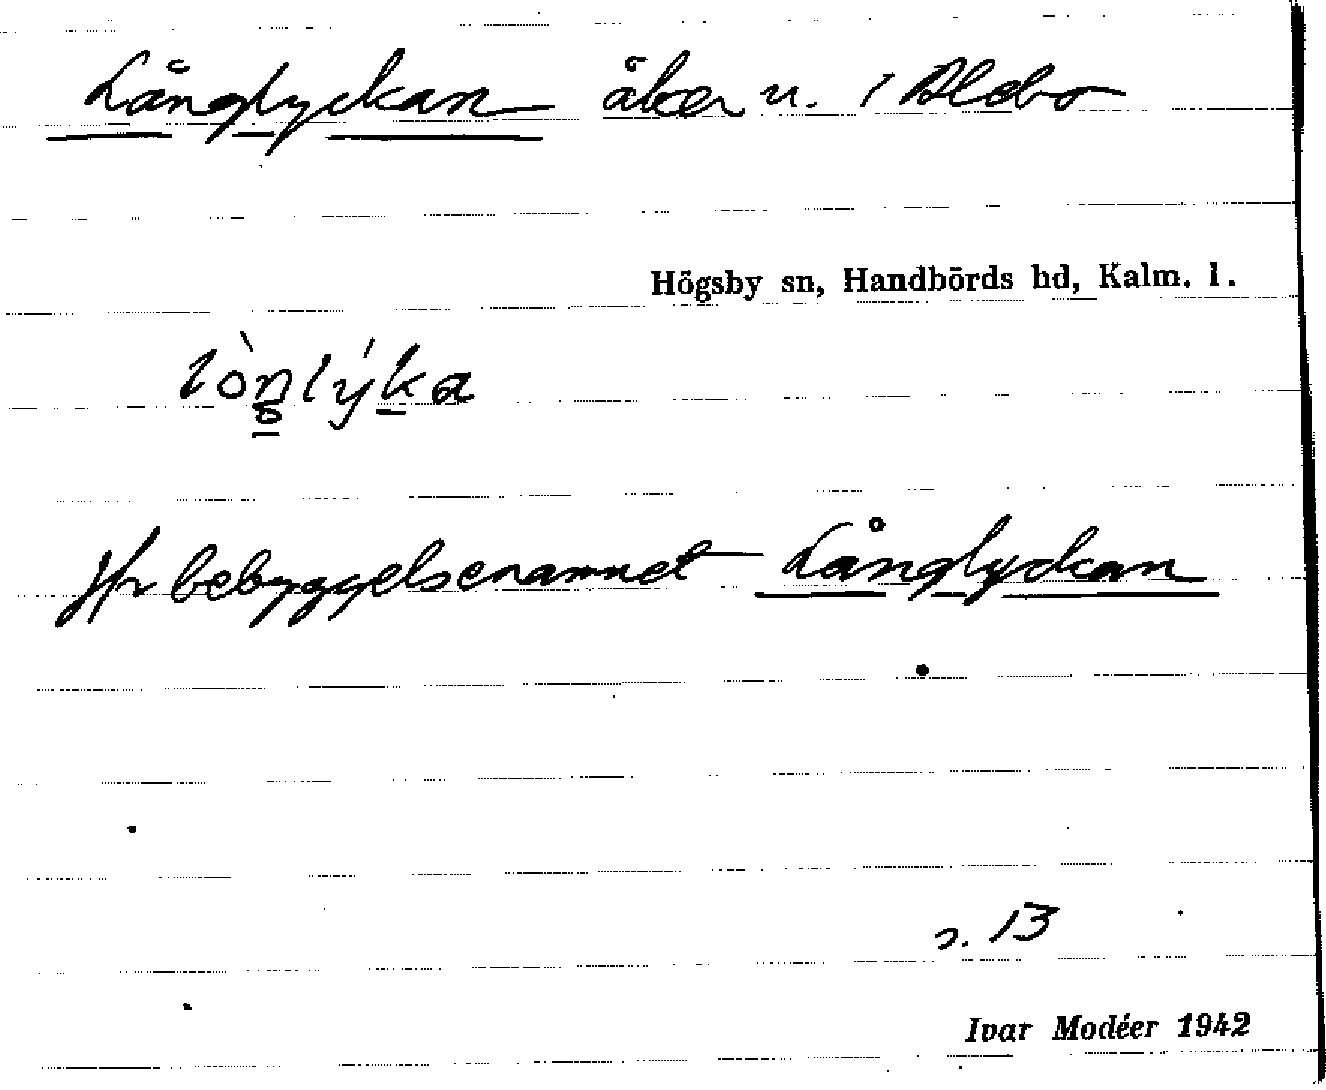 Långlyckan åker u. i Aldbo
Högsby sn, Handbörds hd, Kalm. l.
lòŋlýka
jfr bebyggelsenamnet Långlyckan
s. 13
Ivar Modéer 1942